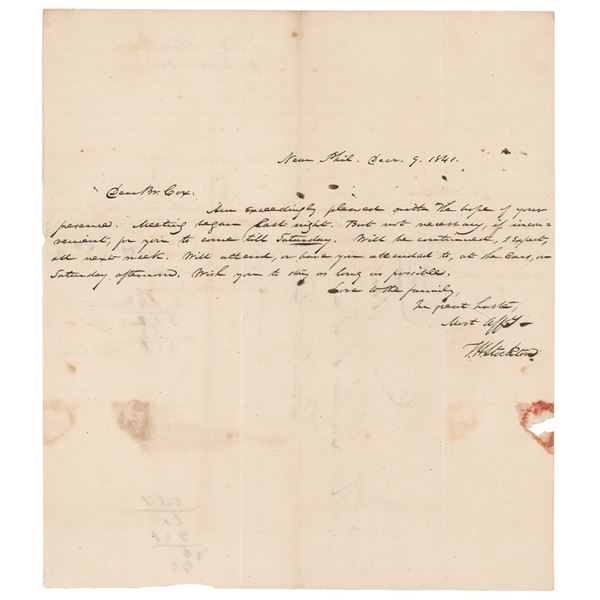 Near Phil. Decr. 9. 1841.
Dear Br. Cox.
Am exceedingly pleased with the hope of your
presence. Meeting began last night. But not necessary, if incon-
venient, for you to come till Saturday. Will be continued, I expect,
all next week. Will attend, or have you attended to, at the Cars, on
Saturday afternoon. Wish you to stay as long as possible.
Love to the family,
In great haste,
Most Affy
T. H. Stockton